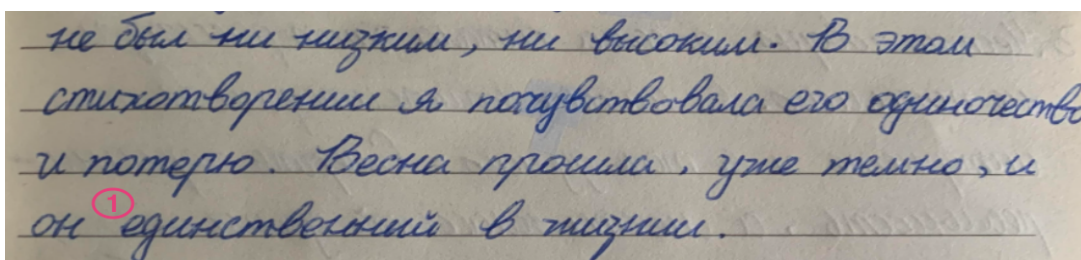 не был ни низким, ни высоким. В этом
стихотворении я почувствовала его одиночество
и потерю. Весна прошла, уже темно, и
1
он единственний в жизнии.